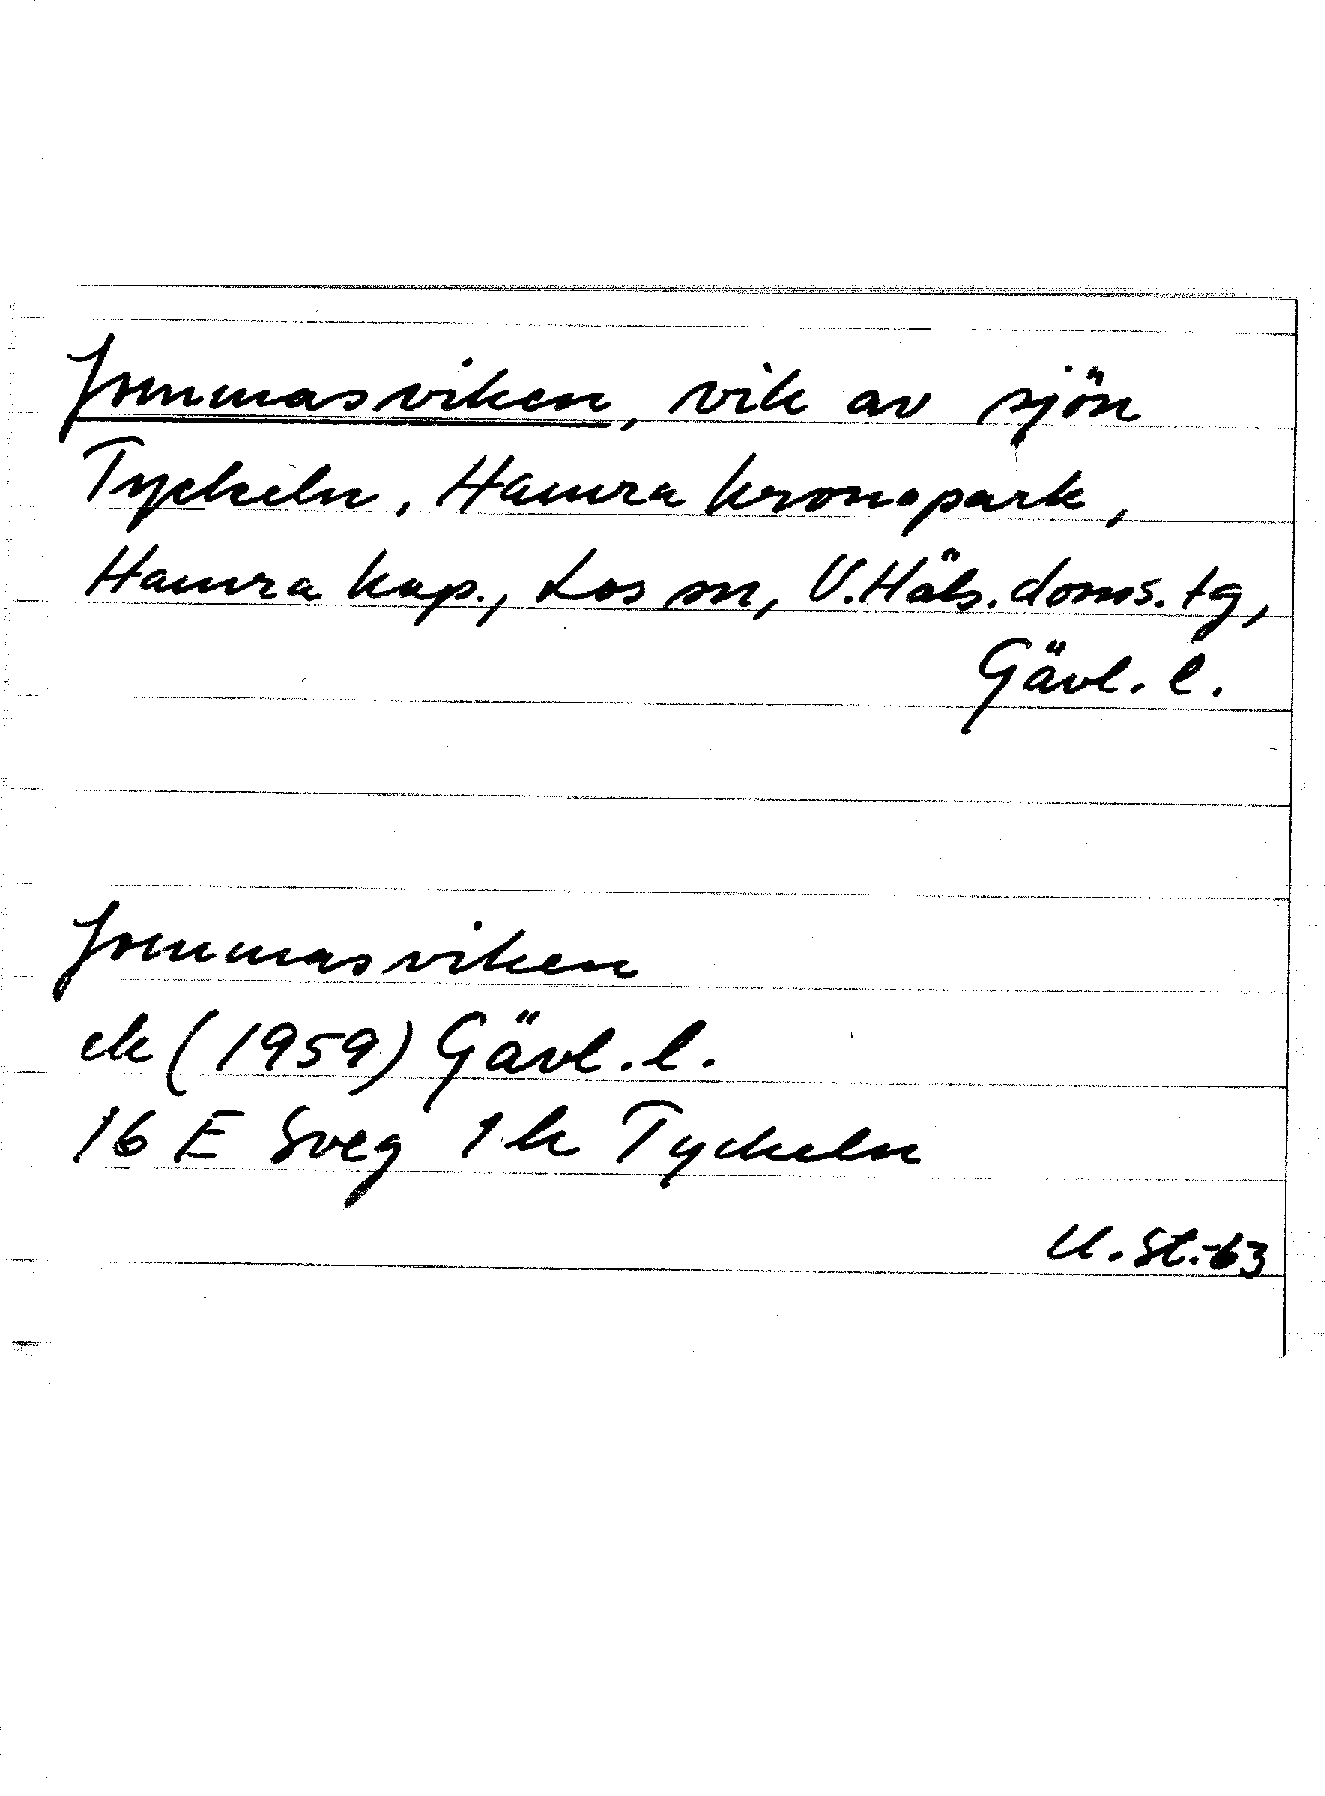 Jommasviken, vik av sjön
Tyckeln, Hamra kronopark,
Hamra kap., Los sn, V. Häls. doms. tg,
Gävl. l.
Jommasviken
ek (1959) Gävl. l.
16 E Sveg 1 k Tyckeln
U. St. -63